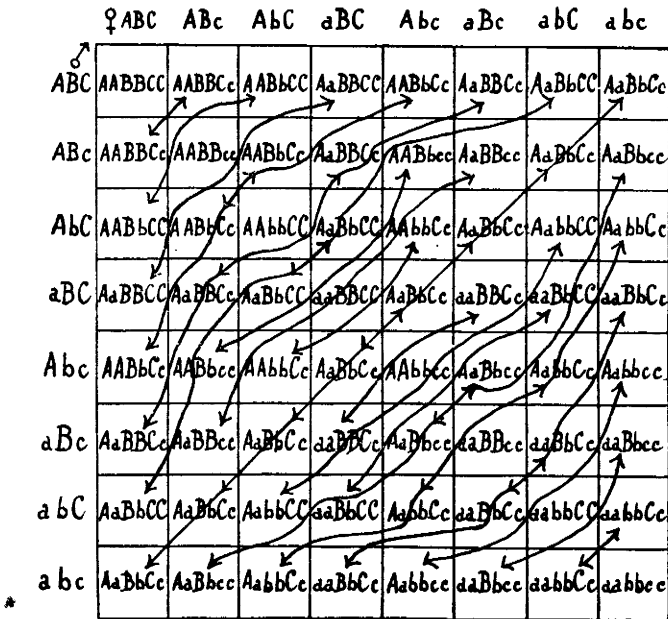 ♀ ABC ABc AbC aBC Abc aBc abC abc
♂
ABC AABBCC AABBCc AABbCC AaBBCC AABbCc AaBBCc AaBbCC AaBbCc
ABc AABBCc AABBcc AABbCc AaBBCc AABbcc AaBBcc AaBbCc AaBbcc
AbC AABbCC AABbCc AAbbCC AaBbCC AAbbCc AaBbCc AabbCC AabbCc
aBC AaBBCC AaBBCc AaBbCC aaBBCC AaBbCc aaBBCc aaBbCC aaBbCc
Abc AABbCc AABbcc AAbbCc AaBbCc AAbbcc AaBbcc AabbCc Aabbcc
aBc AaBBCc AaBBcc AaBbCc aaBBCc AaBbcc aaBBcc aaBbCc aaBbcc
abC AaBbCC AaBbCc AabbCC aaBbCC AabbCc aaBbCc aabbCC aabbCc
abc AaBbCc AaBbcc AabbCc aaBbCc Aabbcc aaBbcc aabbCc aabbcc
*